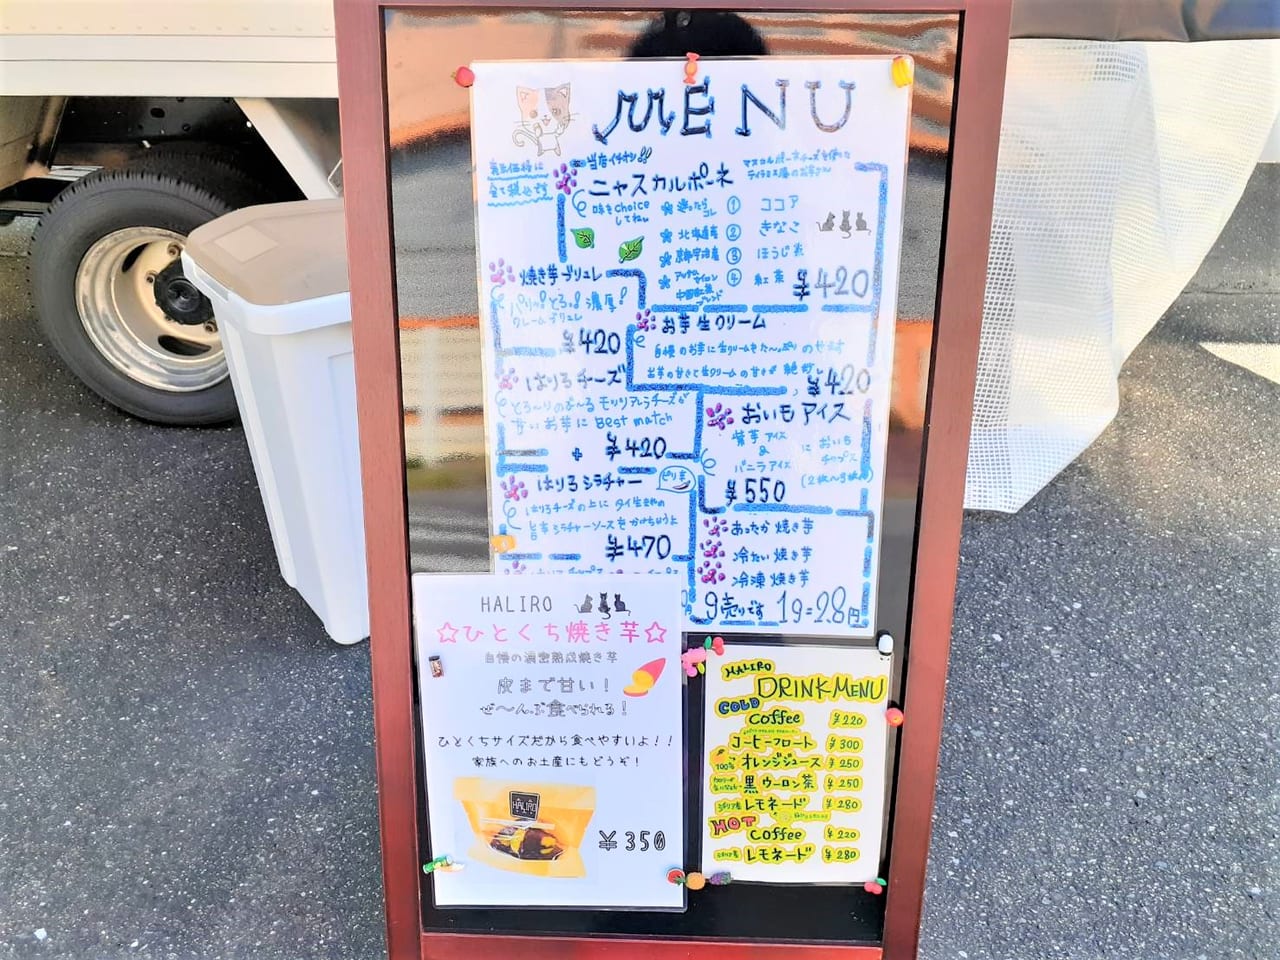 MENU
表示価格は
全て税込です
当店イチオシ!!
ニャスカルポーネ
マスカルポーネチーズを使った
ティラミス風のお芋さん
味をchoice
してね
迷ったらコレ ① ココア
北海道産 ② きなこ
京都宇治産 ③ ほうじ茶
④ 紅茶
¥420
焼き芋ブリュレ
パリッ!とろっ!濃厚!
クレームブリュレ
¥420
お芋生クリーム
自慢のお芋に生クリームをた〜っぷりのせます
お芋の甘さと生クリームの甘さが絶妙
¥420
はりろチーズ
とろ〜りのび〜るモッツアレラチーズが
甘いお芋にBest match
+ ¥420
おいもアイス
紫芋アイス
&
バニラアイス
に おいも
チップス
(2枚〜3枚)
¥550
はりろシラチャー
ピリ辛
はりろチーズの上にタイ生まれの
旨辛シラチャーソースをかけちゃうよ
¥470
あったか焼き芋
冷たい焼き芋
冷凍焼き芋
g売りです 1g=2.8円
HALIRO
☆ひとくち焼き芋☆
自慢の濃密熟成焼き芋
皮まで甘い!
ぜ〜んぶ食べられる!
ひとくちサイズだから食べやすいよ!!
家族へのお土産にもどうぞ!
HALIRO
¥350
HALIRO
DRINK MENU
COLD
coffee ¥220
コーヒーフロート ¥300
100% オレンジジュース ¥250
黒ウーロン茶 ¥250
シチリア産 レモネード ¥280
HOT
coffee ¥220
シチリア産 レモネード ¥280